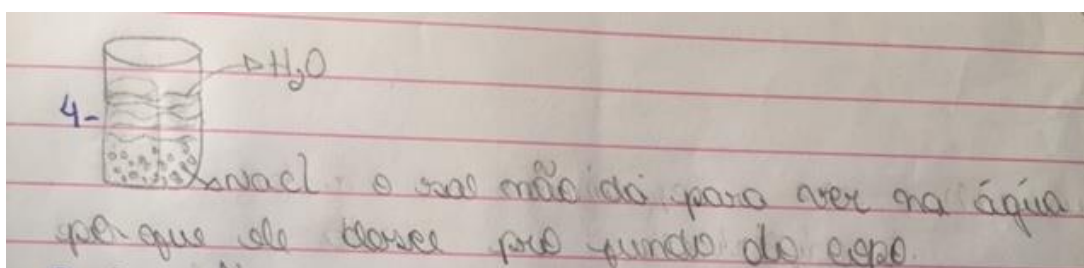 H₂O
4-
Nacl o sal não dá para ver na água
por que ele desce pro fundo do copo.